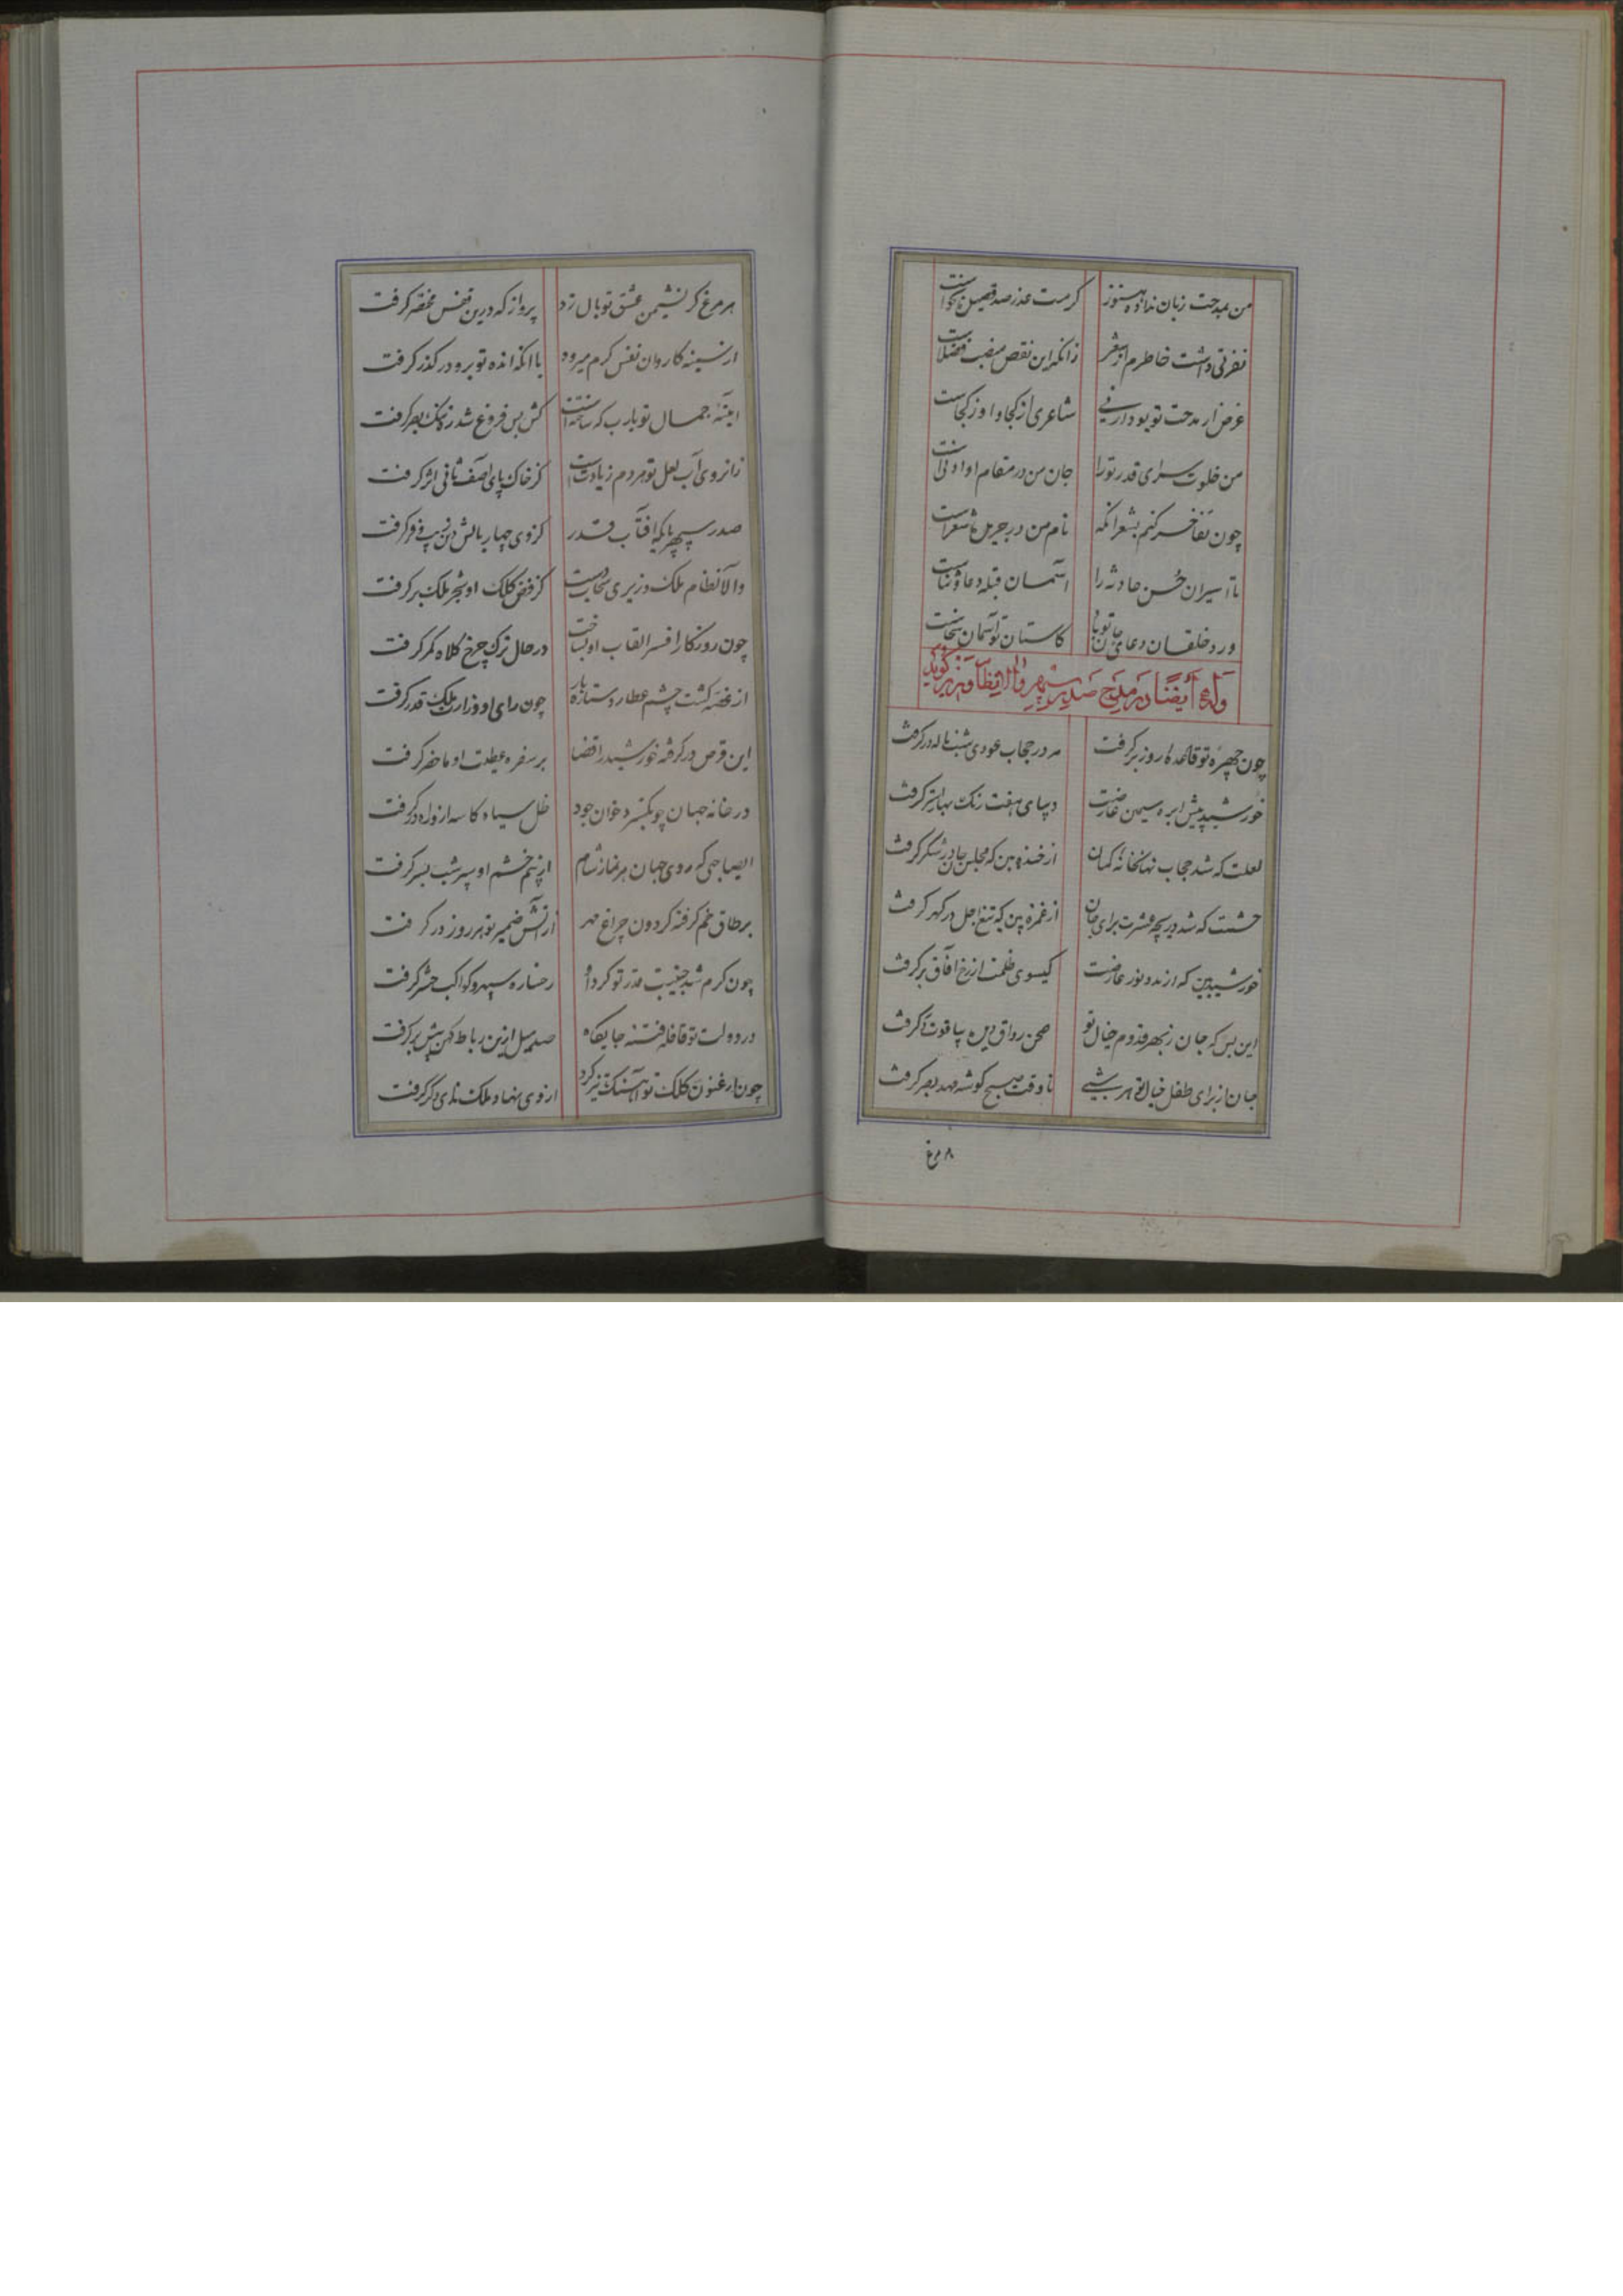 من بمدحت زبان نداده هنوز کرمت عذر صد قصیده نخواست
نفرتی داشت خاطرم از شعر زانکه این نقص منصب فضلاست
غرض از مدحت تو بود ارنی شاعری از کجا و او ز کجاست
من خلوت سرای قدر تو را جان من در مقام او ادنی است
چون تفاخر کنم بشعر آنکه نام من در جریده شعر است
تا اسیران حسن حادثه را آسمان قبله دعا و ثناست
ورد خلقان دعای تو باد کاستان تو آسمان سخاست
وله ایضا در مدح صدر سپهر والا نظام وزیر گوید
چون چهره تو قاعده روز برگرفت مه در حجاب عودی شب ناله درگرفت
خورشید پیش ابره سیمین عارضت دیبای هفت رنگ بهای استر گرفت
لعلت که شد حجاب نهانخانه گمان از خنده بین که مجلس جان در شکر گرفت
چشمت که شد دریچه عشرت برای جان از غمزه بین که تیغ اجل در گهر گرفت
خورشید بین که از مدد نور عارضت گیسوی ظلمت از رخ آفاق برگرفت
این بس که جان ز بهر قدوم خیال تو صحن رواق دیده بیاقوت تر گرفت
جان از برای طفل خیال تو هر شبی تا وقت صبح گوشه مهد بصر گرفت
هر مرغ کز نشیمن عشق تو بال زد پرواز که درین قفس مختصر گرفت
از سینه کاروان نفس گرم میرود با آنکه انده تو برو در گذر گرفت
آینه جمال تو یارب که ساخته است کش بس فروغ شد ز بصر گرفت
زانروی آب لعل تو هر دم زیادت است کز خاک پای آصف ثانی اثر گرفت
صدر سپهر پایه آفتاب قدر کز وی چهار بالش دین زیب و فر گرفت
والا نظام ملک وزیری سحاب دست کز فیض کلک او شجر ملک بر گرفت
چون روزگار افسر القاب او بساخت در حال ترک چرخ کلاه کمر گرفت
از غصه گشت چشم عطارد ستاره بار چون رای او وزارت ملک قدر گرفت
این قرص در گرفته خورشید را قضا بر سفره عطیت او ماحضر گرفت
در خانه جهان چو بگسترد خوان جود ظل سیاه کاسه ازو راه در گرفت
ای صاحبی که روی جهان هر نماز شام از بیم خشم او سپر شب بسر گرفت
بر طاق خم گرفته گردون چراغ مهر از آتش ضمیر تو هر روز در گرفت
چون گرم شد جنیبت قدر تو گرد او رخساره سپهر و کواکب حشر گرفت
در دولت تو قافله فتنه جایگاه صد میل ازین رباط کهن پیش برگرفت
چون ارغنون کلک تو آهنگ تیز کرد از وی نهاد ملک نوای دگر گرفت
مرغ